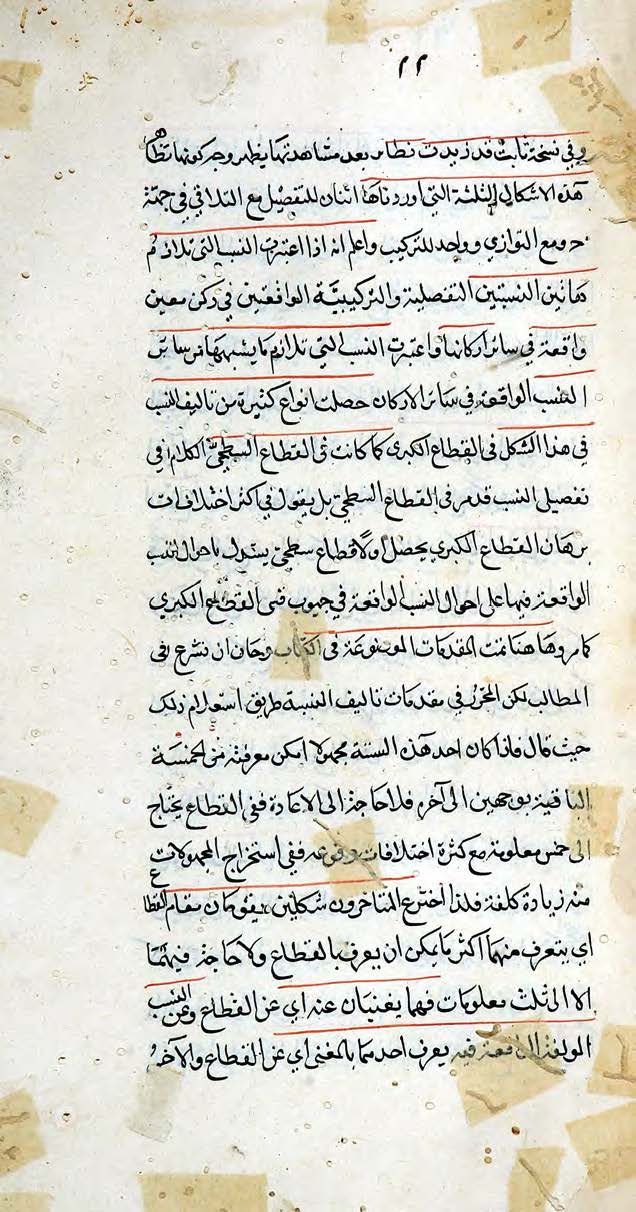 ٢٢
وفي نسخة ثابت قد زيدت نظائر بعد مشاهدتها يظهر وجه كونها نظائر
هذه الاشكال الثلثة التي اوردناها اثنان للتفصيل مع التلاقي في جهة
ومع التوازي وواحد للتركيب واعلم انه اذا اعتبرت النسب التي تلازم
هاتين النسبتين التفصيلية والتركيبية الواقعتين في ركن معين
واقعة في سائر اركانها واعتبرت النسب التي تلازم ما يشبهها من سائر
النسب الواقعة في سائر الاركان حصلت انواع كثيرة من تاليف النسب
في هذا الشكل في القطاع الكبرى كما كانت في القطاع السطحي الكلام في
تفصيل النسب قد مر في القطاع السطحي بل يقول في اكثر اختلافات
برهان القطاع الكبري يحصل اولا قطاع سطحي يستدل باحوال النسب
الواقعة فيها على احوال النسب الواقعة في جيوب قسى القطاع الكبري
كما مر وهاهنا تمت المقدمات الموضوعة في الكتاب وحان ان نشرع في
المطالب لكن المحرر في مقدمات تاليف النسبة طريق استعلام ذلك
حيث قال فاذا كان احد هذه الستة مجهولا امكن معرفته من الخمسة
الباقية بوجهين الى آخره فلا حاجة الى الاعادة ففي القطاع يحتاج
الى خمس معلومة مع كثرة اختلافات وقوعه ففي استخراج المجهولات
منه زيادة كلفة فلذا اخترع المتاخرون شكلين يقومان مقام القطاع
اي يتعرف منهما اكثر ما يمكن ان يعرف بالقطاع ولا حاجة فيهما
الا الى ثلث معلومات فهما يغنيان عنه اي عن القطاع وعن النسب
المولفة الواقعة فيه يعرف احدهما بالمغني اي عن القطاع والآخر